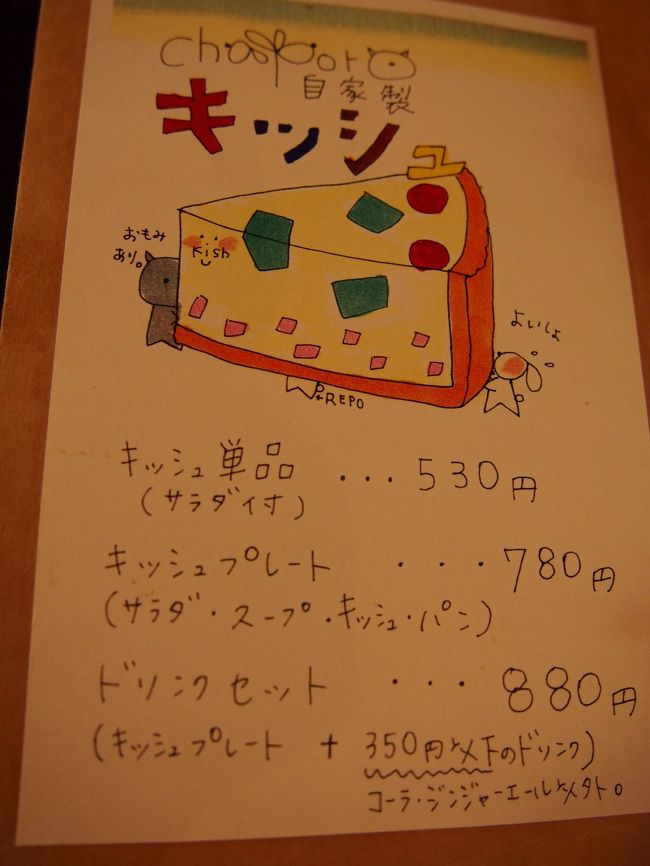 chapporo
自家製
キッシュ
おもみ
あり。
Kish
よいしょ
+REPO
キッシュ単品 ・・・530円
(サラダ付)
キッシュプレート ・・・780円
(サラダ・スープ・キッシュ・パン)
ドリンクセット ・・・880円
(キッシュプレート + 350円以下のドリンク)
コーラ・ジンジャーエール以外。